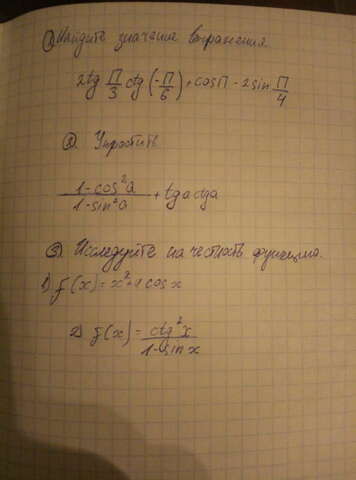 ① Найдите значение выражения
2tg π/3 ctg (-π/6) + cos π - 2 sin π/4
②. Упростить
1-cos²a / 1-sin²a + tg a ctg a
③. Исследуйте на четность функцию.
1) f(x) = x² + cos x
2) f(x) = ctg²x / 1-sin x